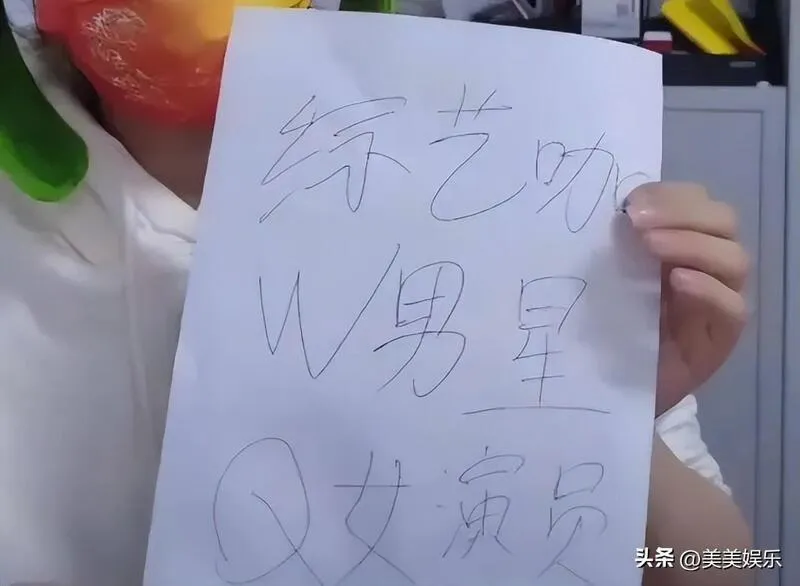 综艺咖
W男星
Q女演员
头条 @美美娱乐